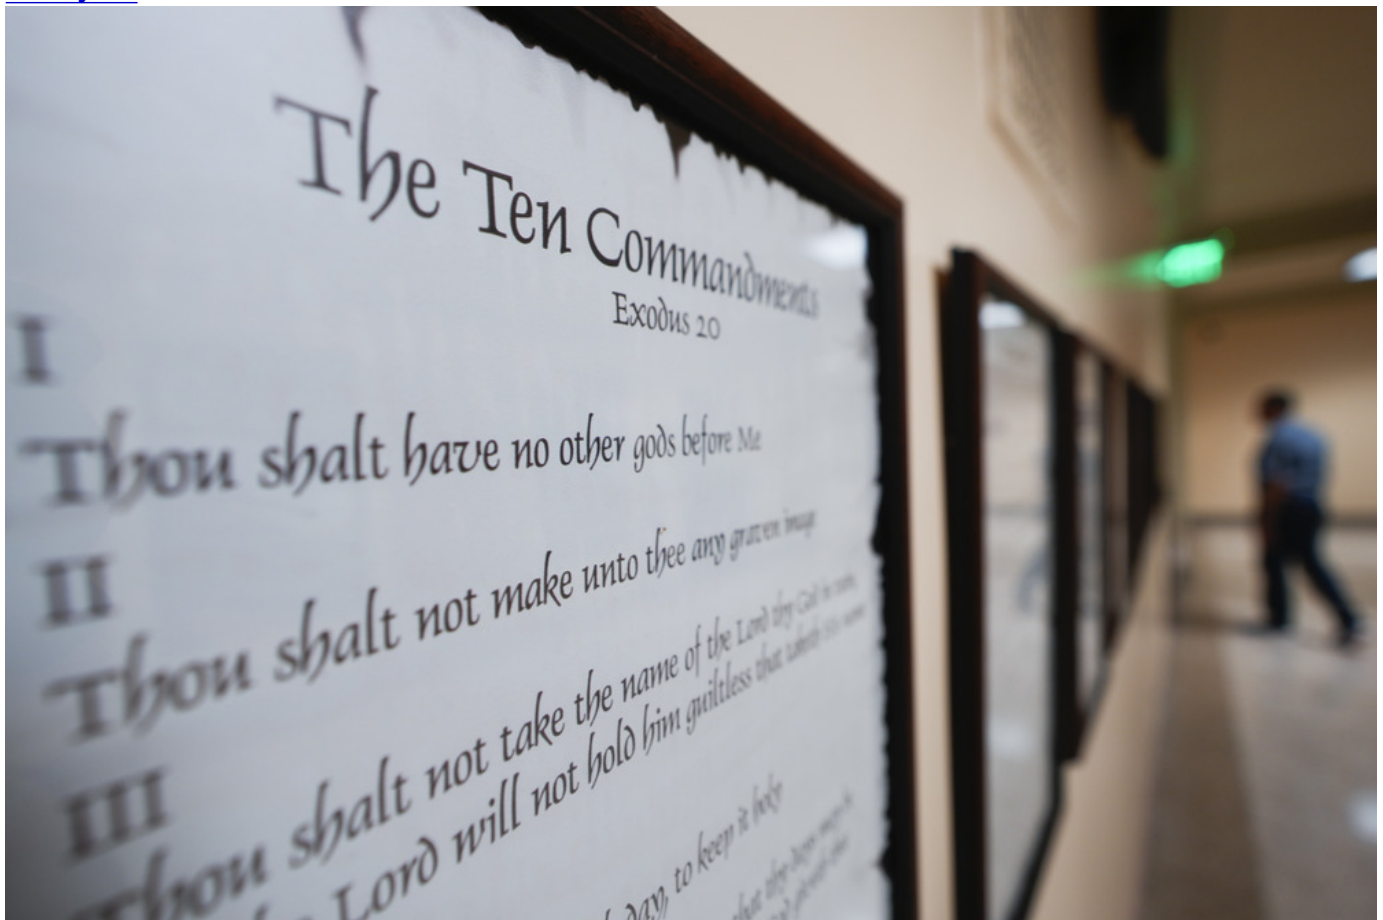 The Ten Commandments
Exodus 20
I
Thou shalt have no other gods before Me
II
Thou shalt not make unto thee any graven image
III
Thou shalt not take the name of the Lord thy God in vain,
Lord will not hold him guiltless that taketh His name
day, to keep it holy
that thy days may b